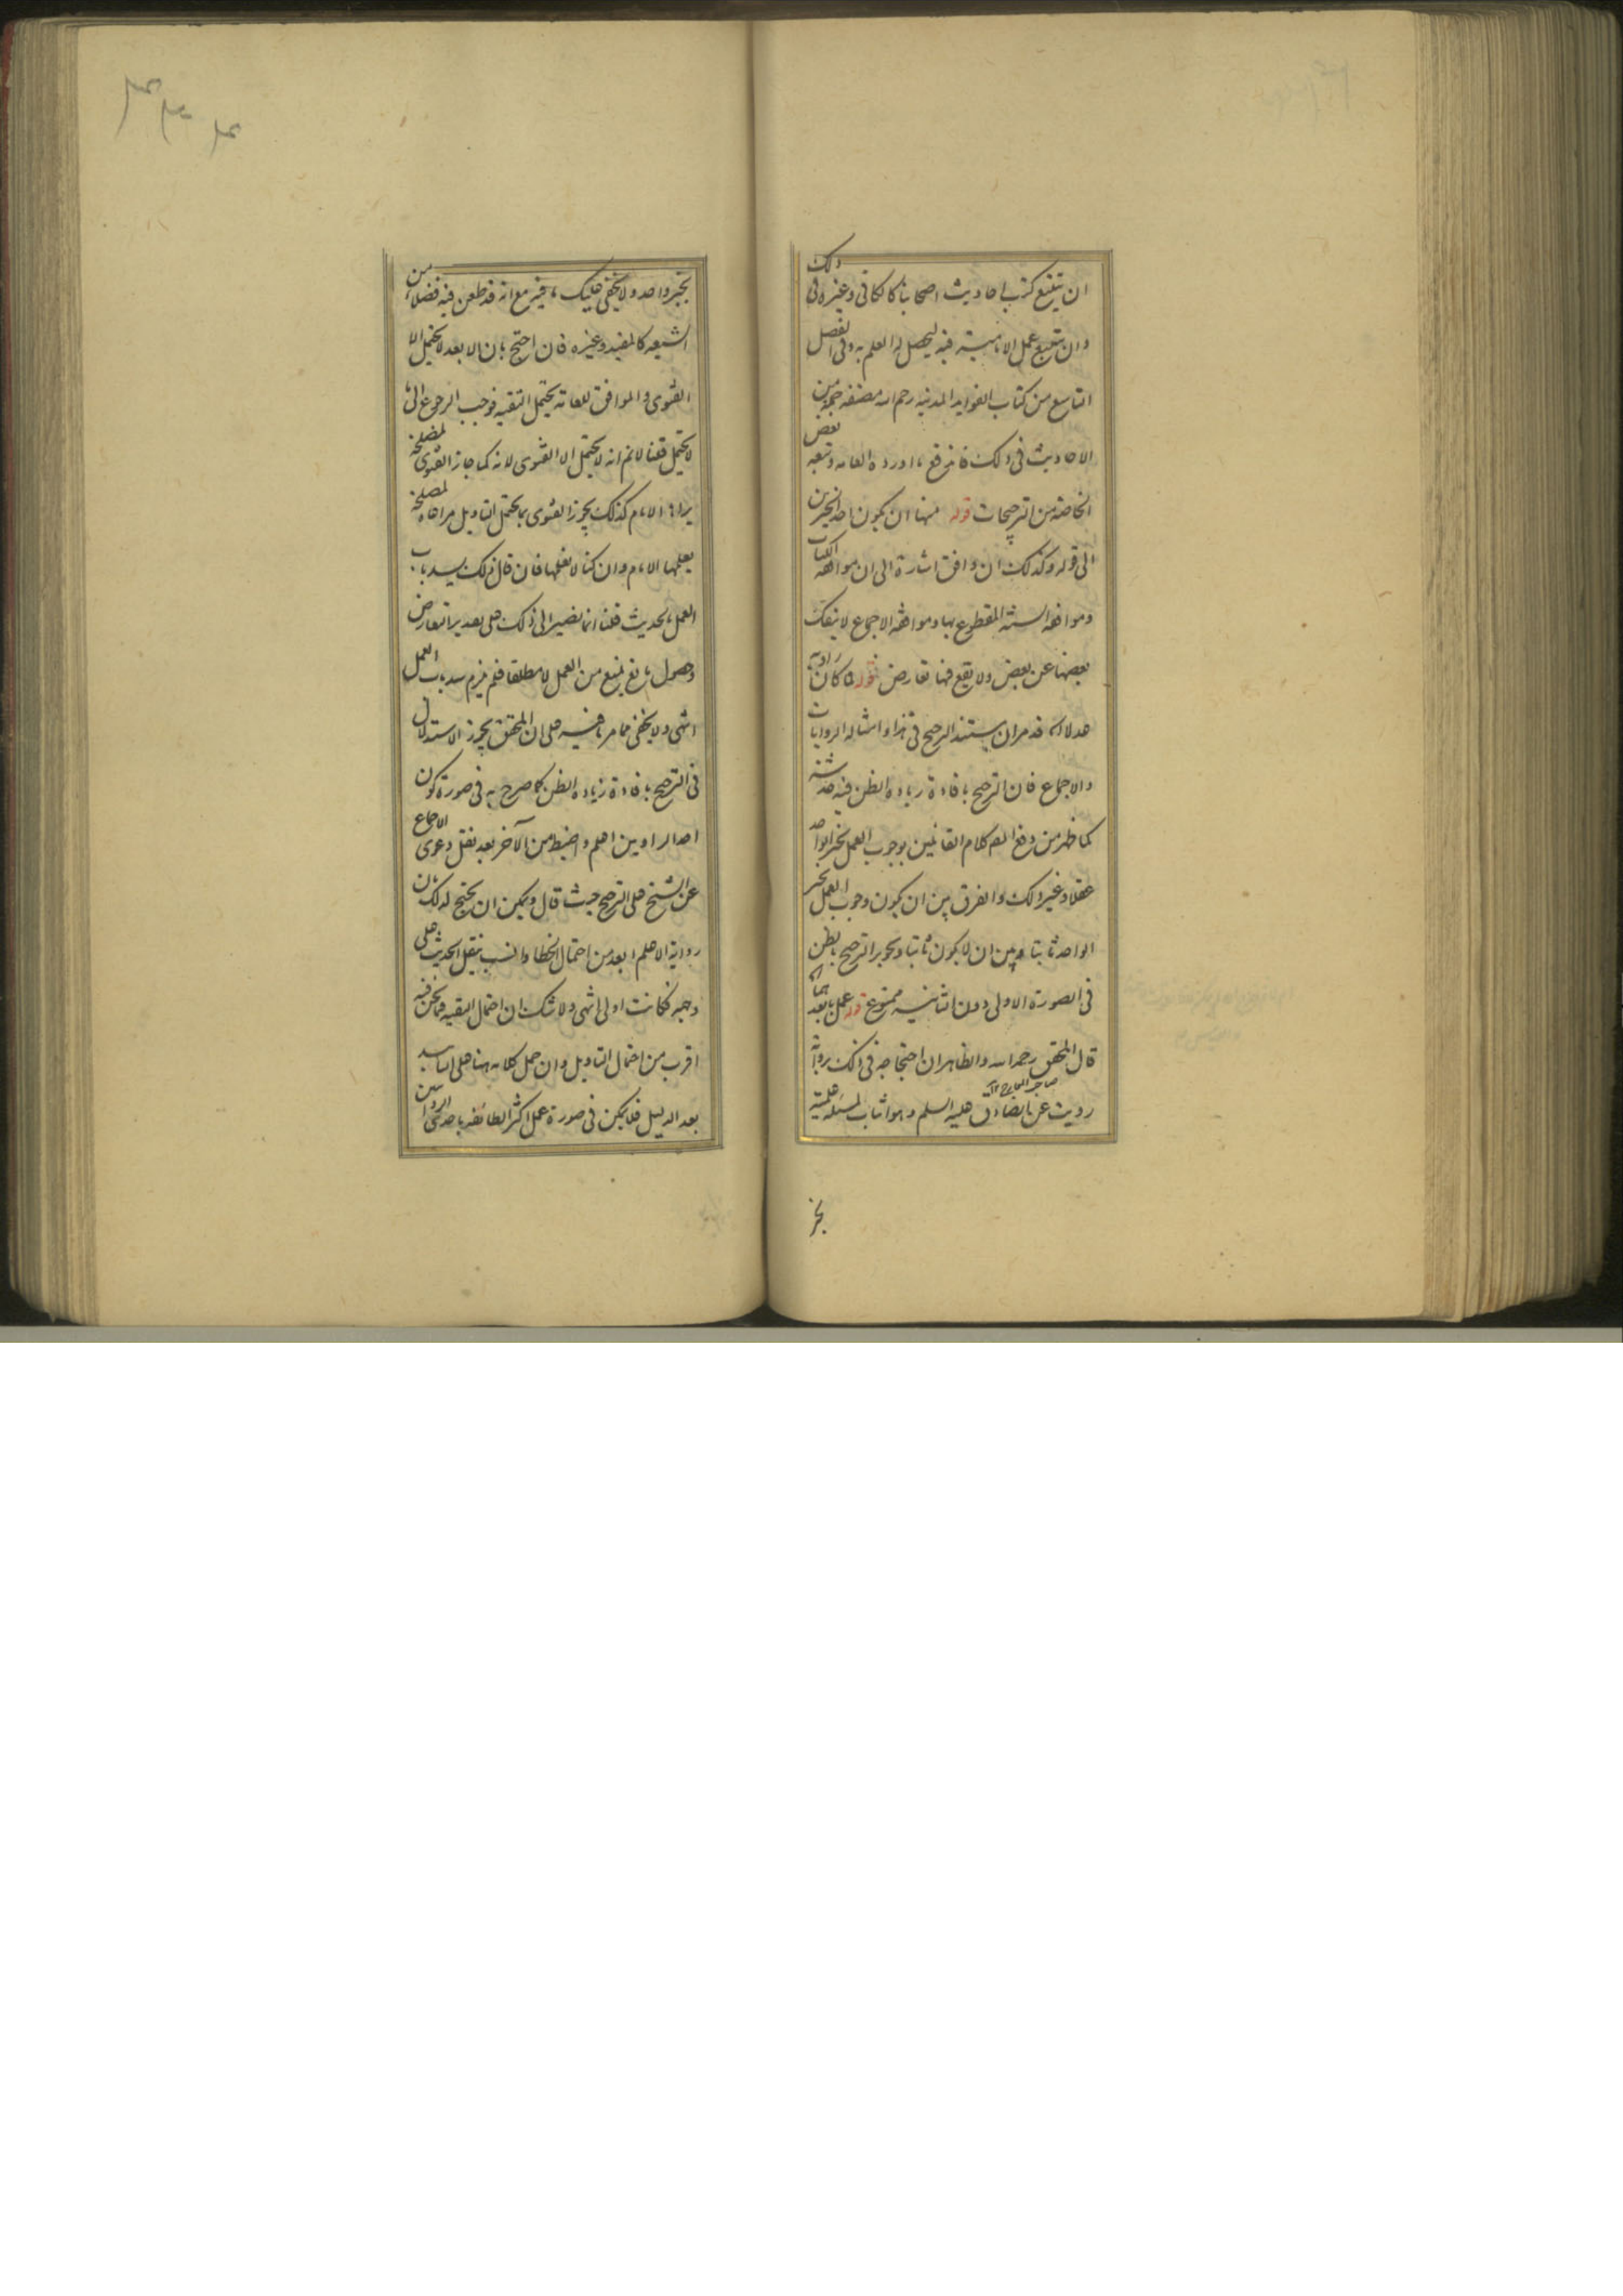 ان يتتبع كتب احاديث اصحابنا كالكافى وغيره فى ذلك
وان يتتبع عمل الامامية فيه ليحصل له العلم به وفى الفصل
التاسع من كتاب الفوايد المدنيه رحم الله مصنفه جملة من
الاحاديث فى ذلك فانه رفع ما اورده العامه وتبعه بعض
الخاصة من الترجيحات قوله منها ان يكون احد الخبرين
الى قوله وكذلك ان وافق اشارة الى ان موافقة الكتاب
وموافقة السنة المقطوع بها وموافقة الاجماع لا ينفك
بعضها عن بعض ولا يقع فيها تعارض قوله فما كان راويه
عدلا اه قد مر ان مستند الترجيح فى هذا وامثاله الروايات
والاجماع فان الترجيح بافادة زياده الظن فيه خدشة
كما ظهر من دفع المص كلام القائلين بوجوب العمل بخبر الواحد
عقلا وغير ذلك والفرق بين ان يكون وجوب العمل بخبر
الواحد ثابتا وبين ان لا يكون ثابتا وتجويز الترجيح بالظن
فى الصورة الاولى دون الثانية ممنوع قوله عمل بابعدهما اه
قال المحقق رحمه الله والظاهر ان احتجاجه فى ذلك برواية
رويت عن الصادق عليه السلم وهو اثبات لمسئلة علمية
بخبر
بخبر واحد ولا يخفى عليك ما فيه مع انه قد طعن فيه فضلاء من
الشيعه كالمفيد وغيره فان احتج بان الابعد لا يحتمل الا
الفتوى والموافق للعامه يحتمل التقيه فوجب الرجوع الى ما
لا يحتمل قلنا لا نم انه لا يحتمل الا الفتوى لانه كما جاز الفتوى لمصلحة
يراها الامام كذلك يجوز الفتوى بما يحتمل التاويل مراعاة لمصلحة
يعلمها الامام وان كنا لا نعلمها فان قال ذلك يسد باب
العمل بالحديث قلنا انما نصير الى ذلك على تقدير التعارض
وحصول مانع يمنع من العمل لا مطلقا فلم يلزم سد باب العمل
انتهى ولا يخفى مما مر ما فيه على ان المحقق يجوز الاستدلال
فى الترجيح بافادة زياده الظن كما صرح به فى صورة كون
احد الراويين اعلم واضبط من الآخر بعد نقل دعوى الاجماع
عن الشيخ على الترجيح حيث قال ويمكن ان يحتج لذلك بان
رواية الاعلم ابعد من احتمال الخطا وانسب بنقل الحديث على
وجهه فكانت اولى انتهى ولا شك ان احتمال التقيه فيما نحن فيه
اقرب من احتمال التاويل وان حمل كلامه هنا على التاييد
بعد الدليل فلا يمكن فى صورة عمل اكثر الطائفه باحدى الروايتين